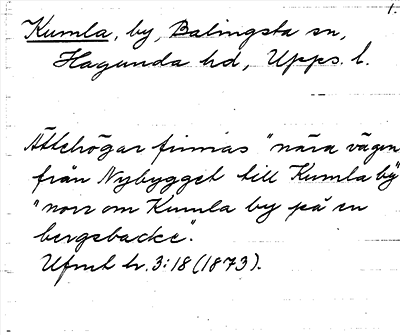 1.
Kumla, by, Balingsta sn,
Hagunda hd, Upps. l.
Ättehögar finnas "nära vägen
från Nybygget till Kumla by"
"norr om Kumla by på en
bergsbacke".
Ufmt h. 3:18 (1873).